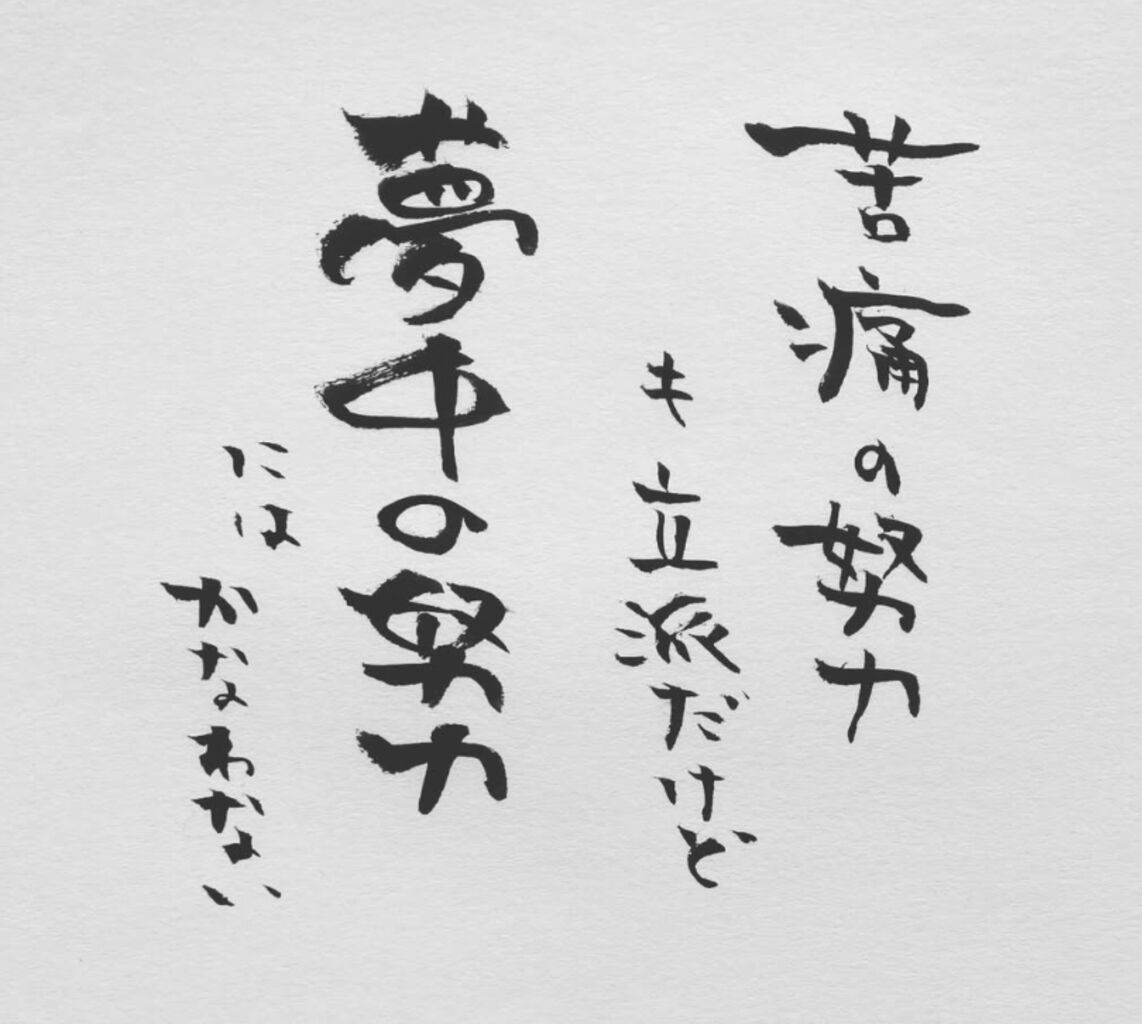 苦痛の努力
も立派だけど
夢中の努力
にはかなわない